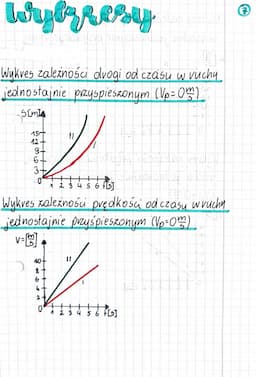 Wykresy.
7
Wykres zależności drogi od czasu w ruchu
jednostajnie przyspieszonym (Vp=0 m/s)
S[m]
15
12
9
6
3
0
1 2 3 4 5 6 t[s]
II
I
Wykres zależności prędkości od czasu w ruchu
jednostajnie przyśpieszonym (Vp=0 m/s)
V=[m/s]
10
8
6
4
2
0
1 2 3 4 5 6 t[s]
II
I